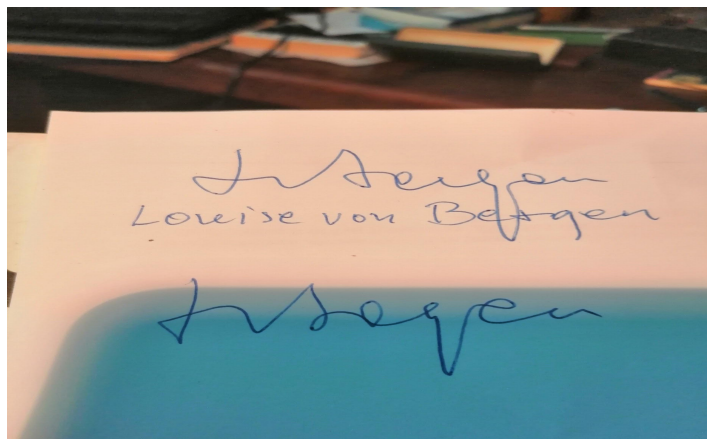 LvBergen
Louise von Bergen
LvBergen